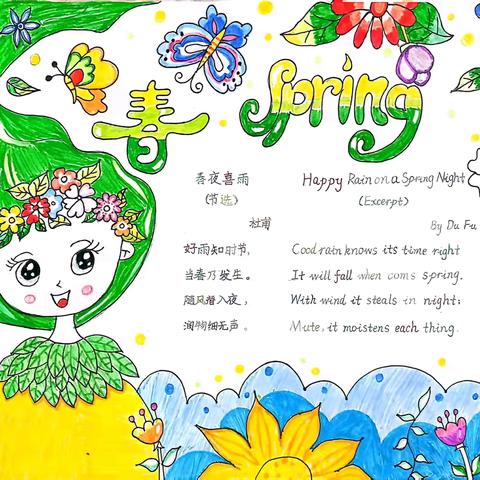 春 Spring
春夜喜雨
(节选)
杜甫
好雨知时节,
当春乃发生。
随风潜入夜,
润物细无声。
Happy Rain on a Spring Night
(Excerpt)
By Du Fu
Cood rain knows its time right
It will fall when coms spring.
With wind it steals in night;
Mute, it moistens each thing.